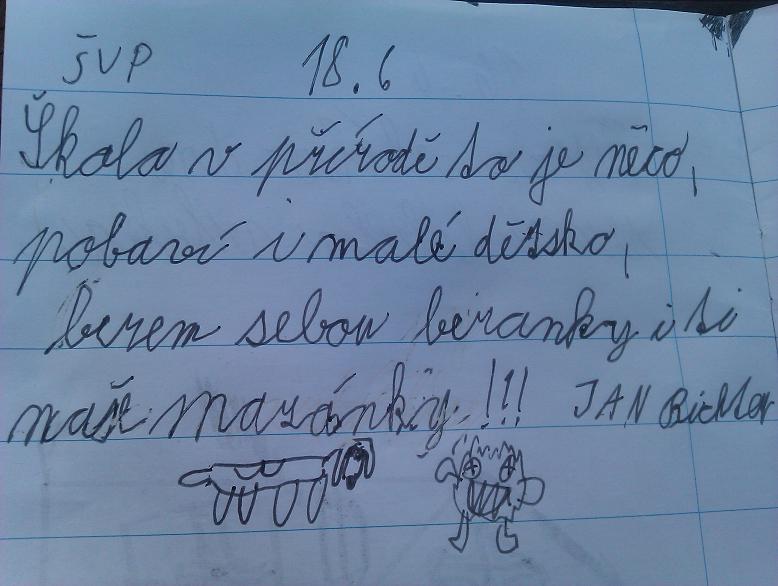 ŠVP 18.6
Škola v přírodě to je něco,
pobaví i malé dětsko,
berem sebou beranky i ti
naše mazánky!!! JAN Richter